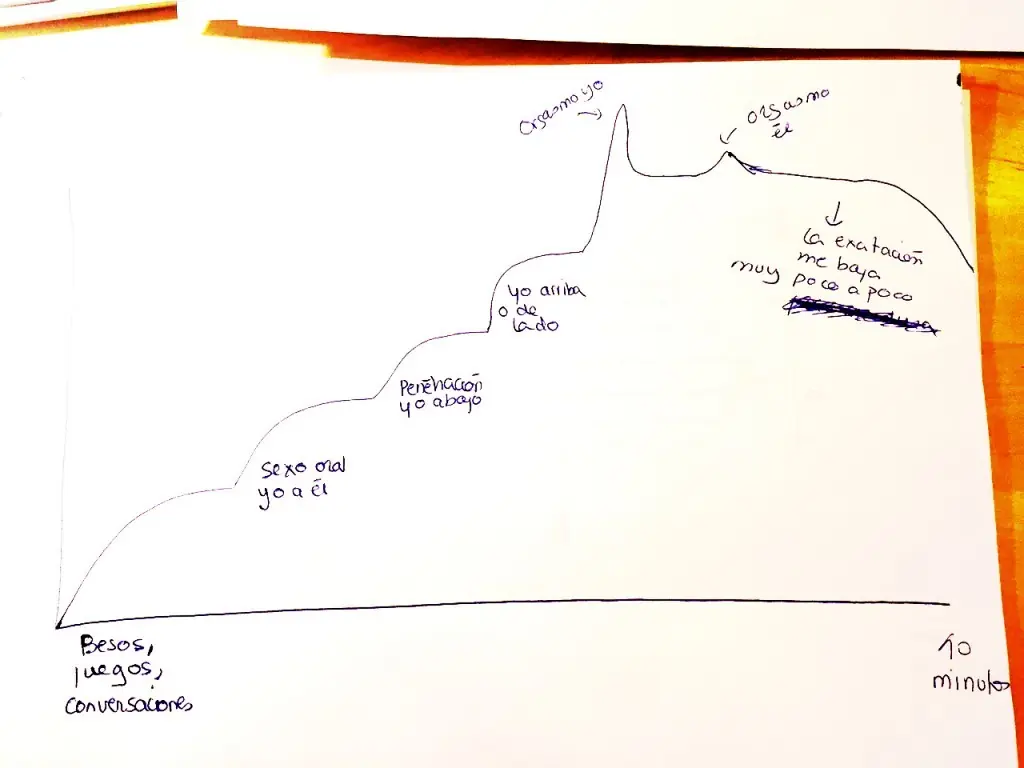 orgasmo yo
orgasmo
él
la exitación
me baja
muy poco a poco
yo arriba
o de
lado
Penetración
yo abajo
sexo oral
yo a él
Besos,
juegos,
conversaciones
10
minutos